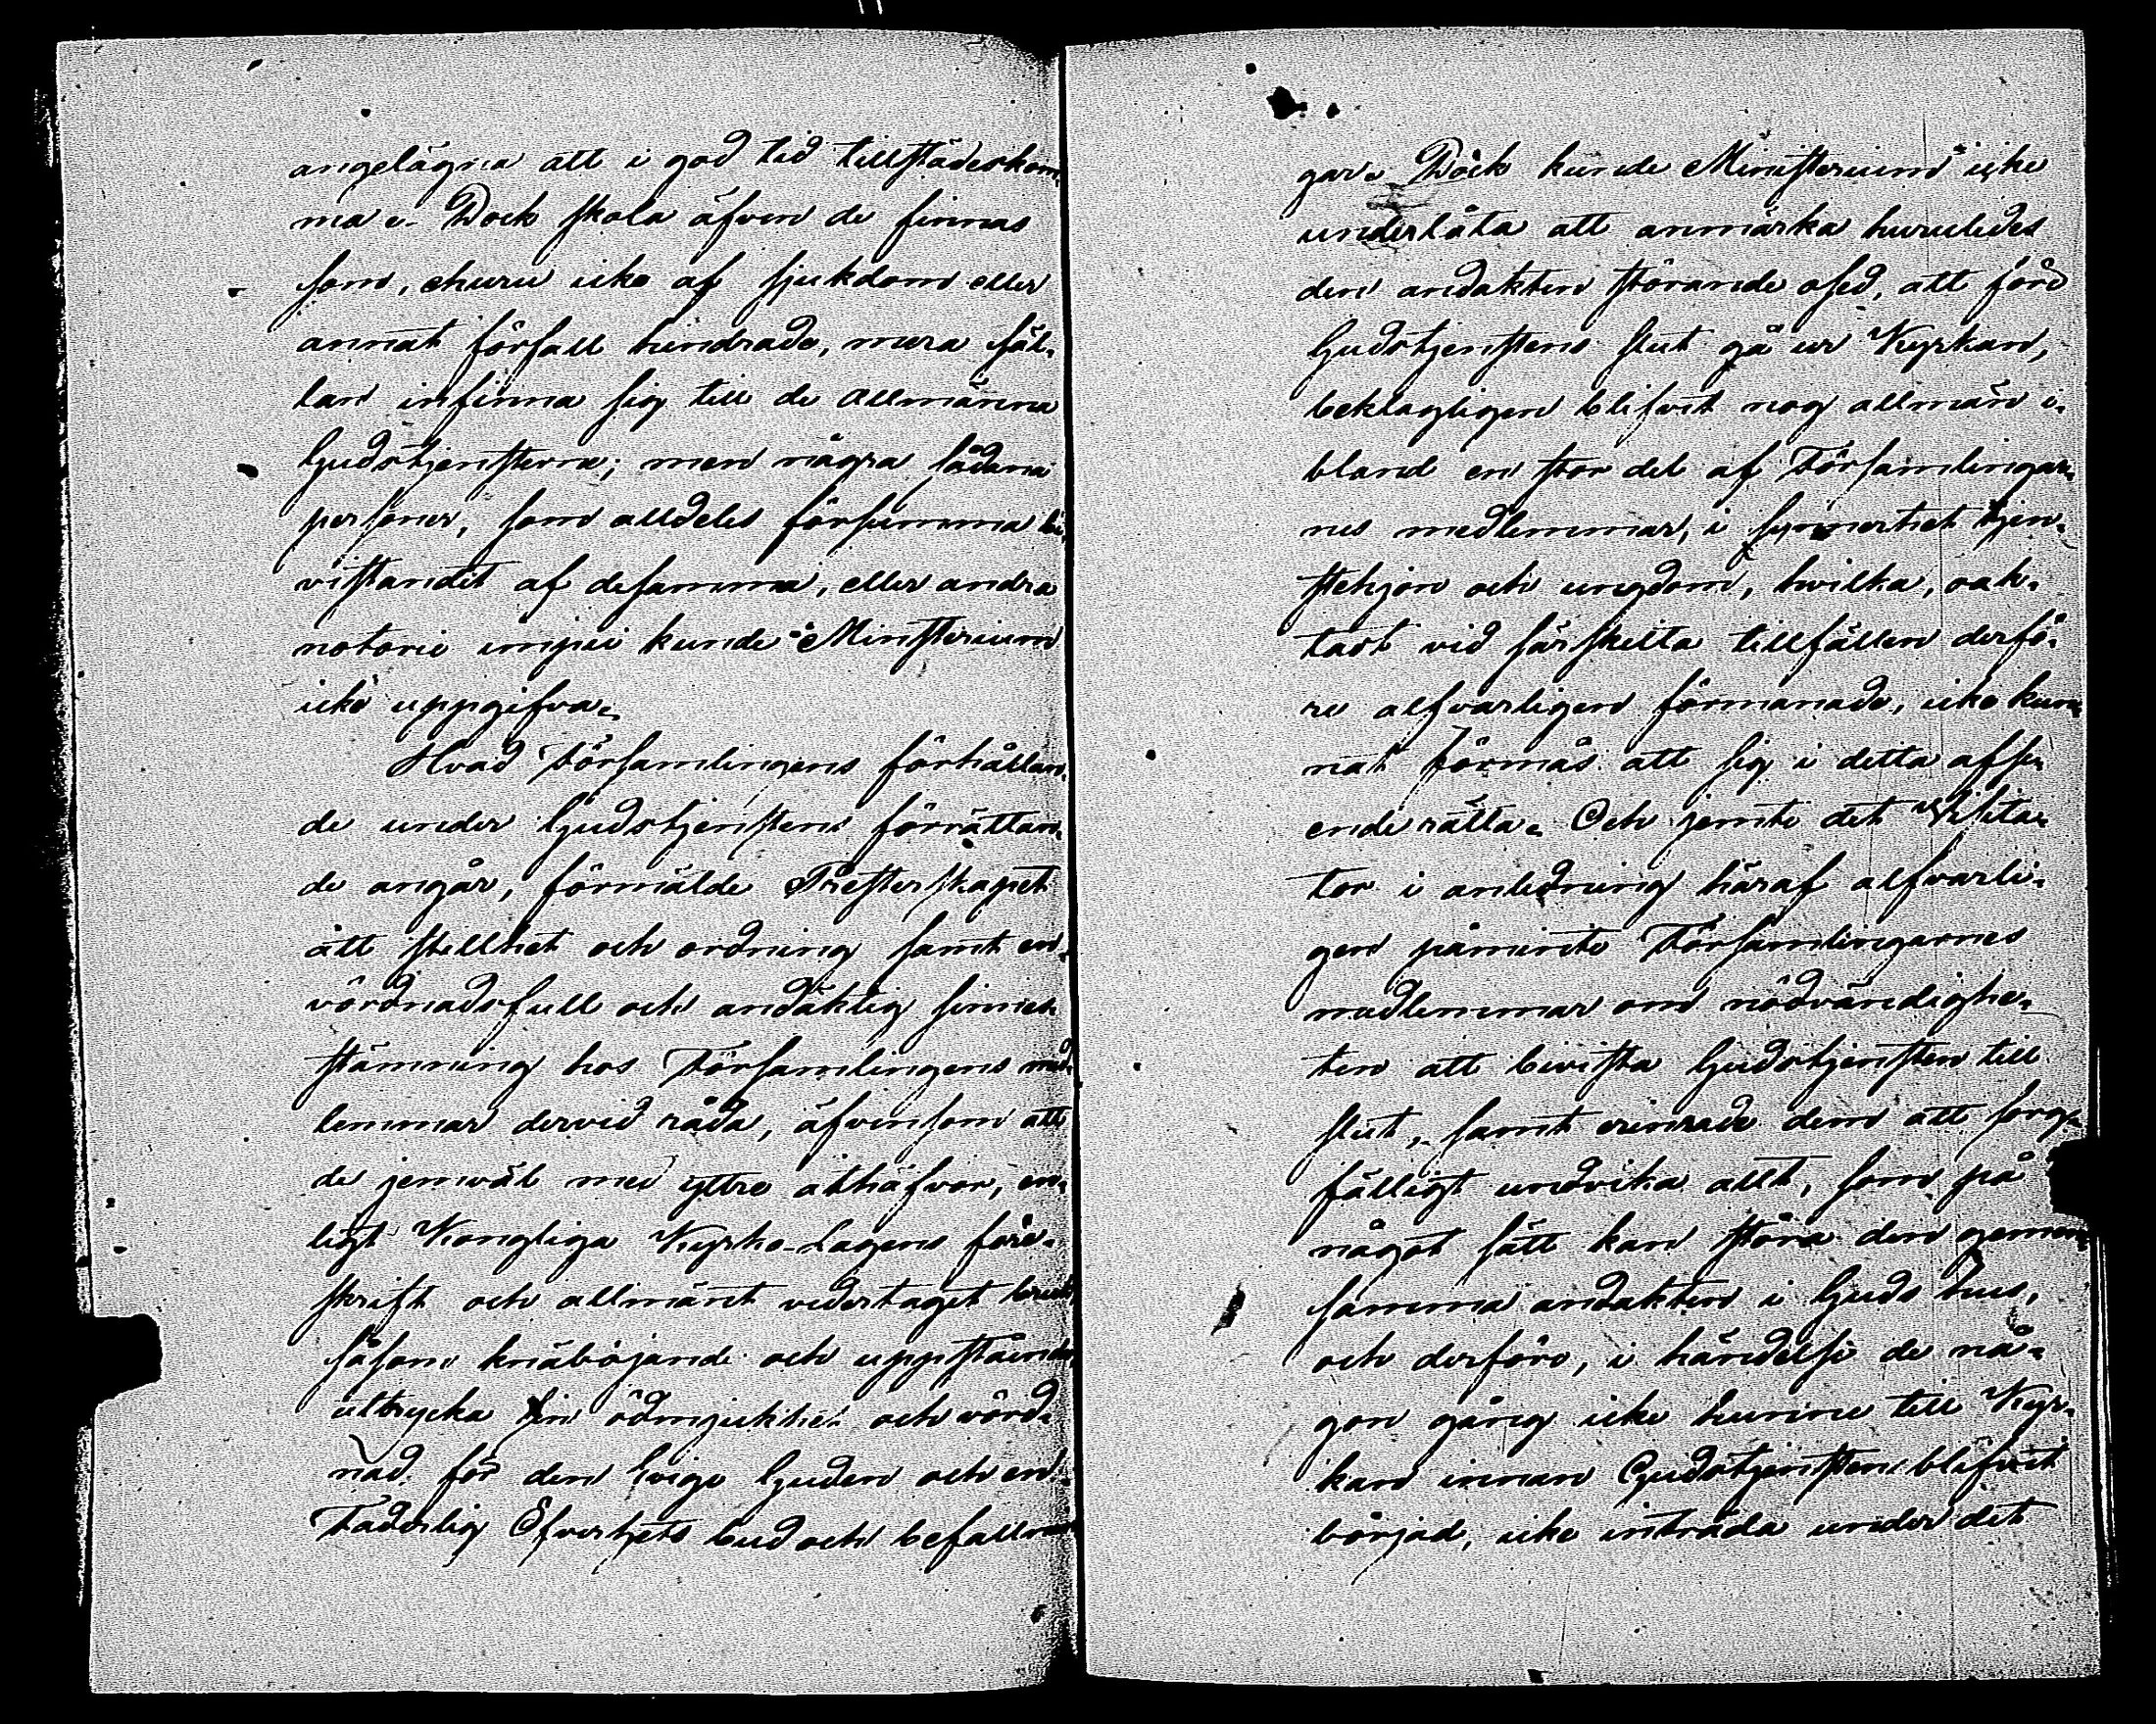 angelägna att i god tid tillstädeskom¬
ma. Dock skola äfven de finnas
som, ehuru icke af sjukdom eller
annat förfall hindrade, mera säl¬
lan infinna sig till de allmänna
Gudstjensterna; men några sådana
personer, som alldeles försumma bi¬
vistandet af desamma, eller andra
notorie impii kunde Ministerium
icke uppgifva.
Hvad Församlingens förhållan¬
de under Gudstjenstens förrättan¬
de angår, förmälde Presterskapet
att stillhet och ordning samt en
vördnadsfull och andäktig sinnes¬
stämning hos Församlingens med¬
lemmar dervid råda, äfvensom att
de jemväl med yttre åthäfvor, en¬
ligt Kongliga Kyrko-Lagens före¬
skrift och allmänt vedertaget bruk
såsom knäböjande och uppstående
uttrycka sin ödmjukhet och vörd¬
nad för den höge Guden och en
Faderlig Öfverhets bud och befallnin¬
gar. Dock kunde Ministerium icke
underlåta att anmärka huruledes
den andakten störande osed, att före
Gudstjenstens slut gå ur Kyrkan,
beklagligen blifvit nog allmän i¬
bland en stor del af Församlingar¬
nes medlemmar, i synnerhet tjen¬
stehjon och ungdom, hvilka, oak¬
tadt vid särskilta tillfällen derfö¬
re alfvarligen förmanade, icke kun¬
nat förmås att sig i detta afse¬
ende rätta. Och jemte det Visita¬
tor i anledning häraf alfvarli¬
gen påminte Församlingarnes
medlemmar om nödvändighe¬
ten att bevista Gudstjensten till
slut, samt erinrade dem att sorg¬
fälligt undvika allt, som på
något sätt kan störa den gemen¬
samma andakten i Guds hus,
och derföre, i händelse de nå¬
gon gång icke hunne till Kyr¬
kan innan Gudstjensten blifvit
börjad, icke inträda under det